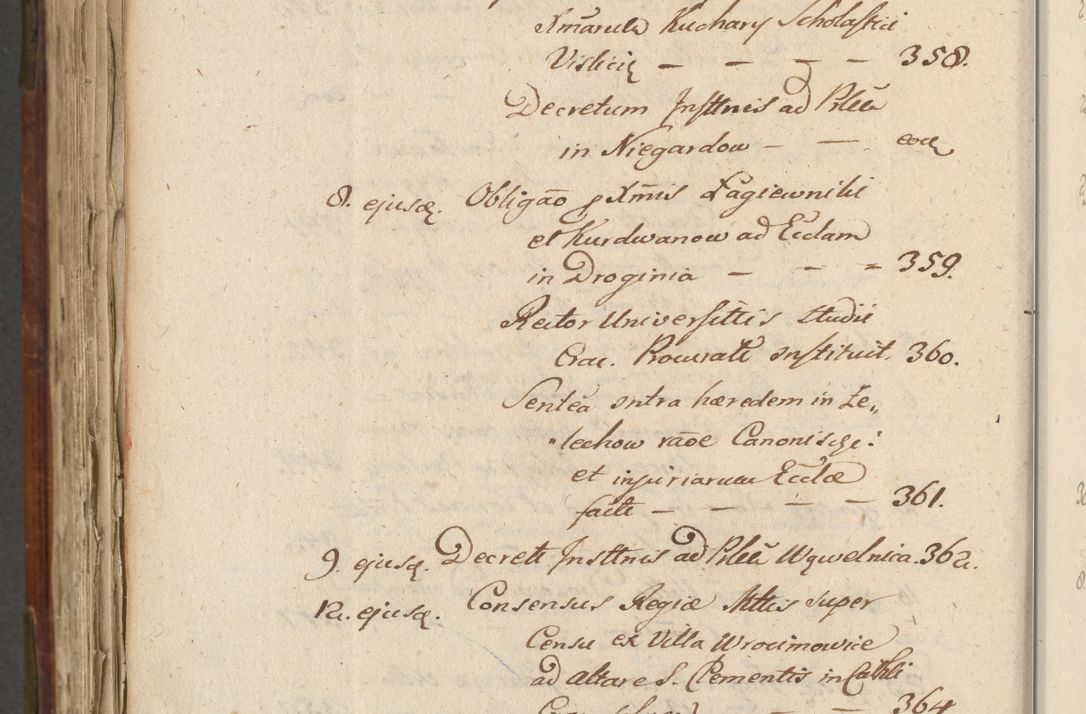 Xmārula Kuchary Scholastici
Vislicię – – – – 358.
Decretum Insttnis ad Plēū
in Niegardow – – eoď
8. ejusđ. Obligāo p Xm̄is Łagiewniki
et Kurdwanow ad Ecclam
in Droginia – – = 359.
Rector Universittis Studii
Crac. Procurate̅ instituit. 360.
Sentēa cntra hæredem in Ze„
„lechow rāoe Canonis
et injuriarum Ecclæ
facte – – – – 361.
9. ejusđ. Decrett Insttnis ad Plēū Wąwelnica. 362.
12. ejusđ. Consensus Regiæ Mttis super
Censu ex Villa Wrocimowice
ad altare S. Clementis in Cathli
364